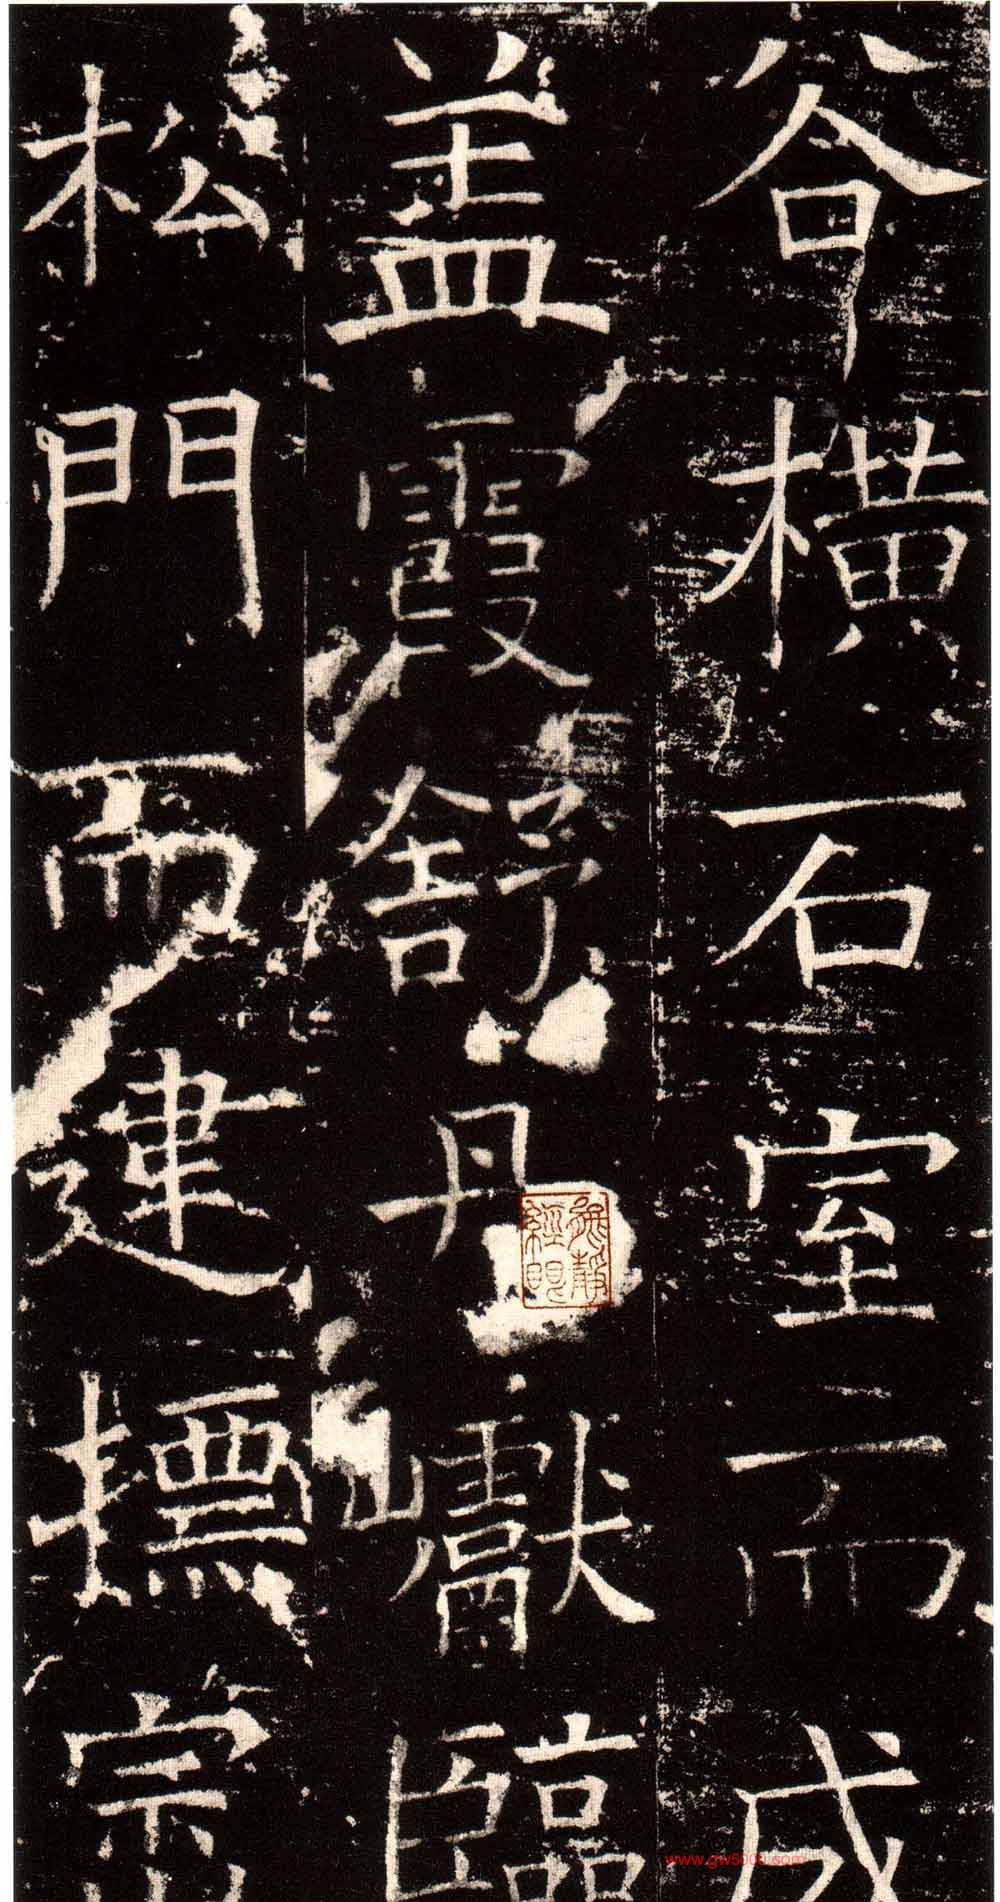 谷橫石室而成
盖霞舒丹巘臨
松門而建標崇
www.gw500.com